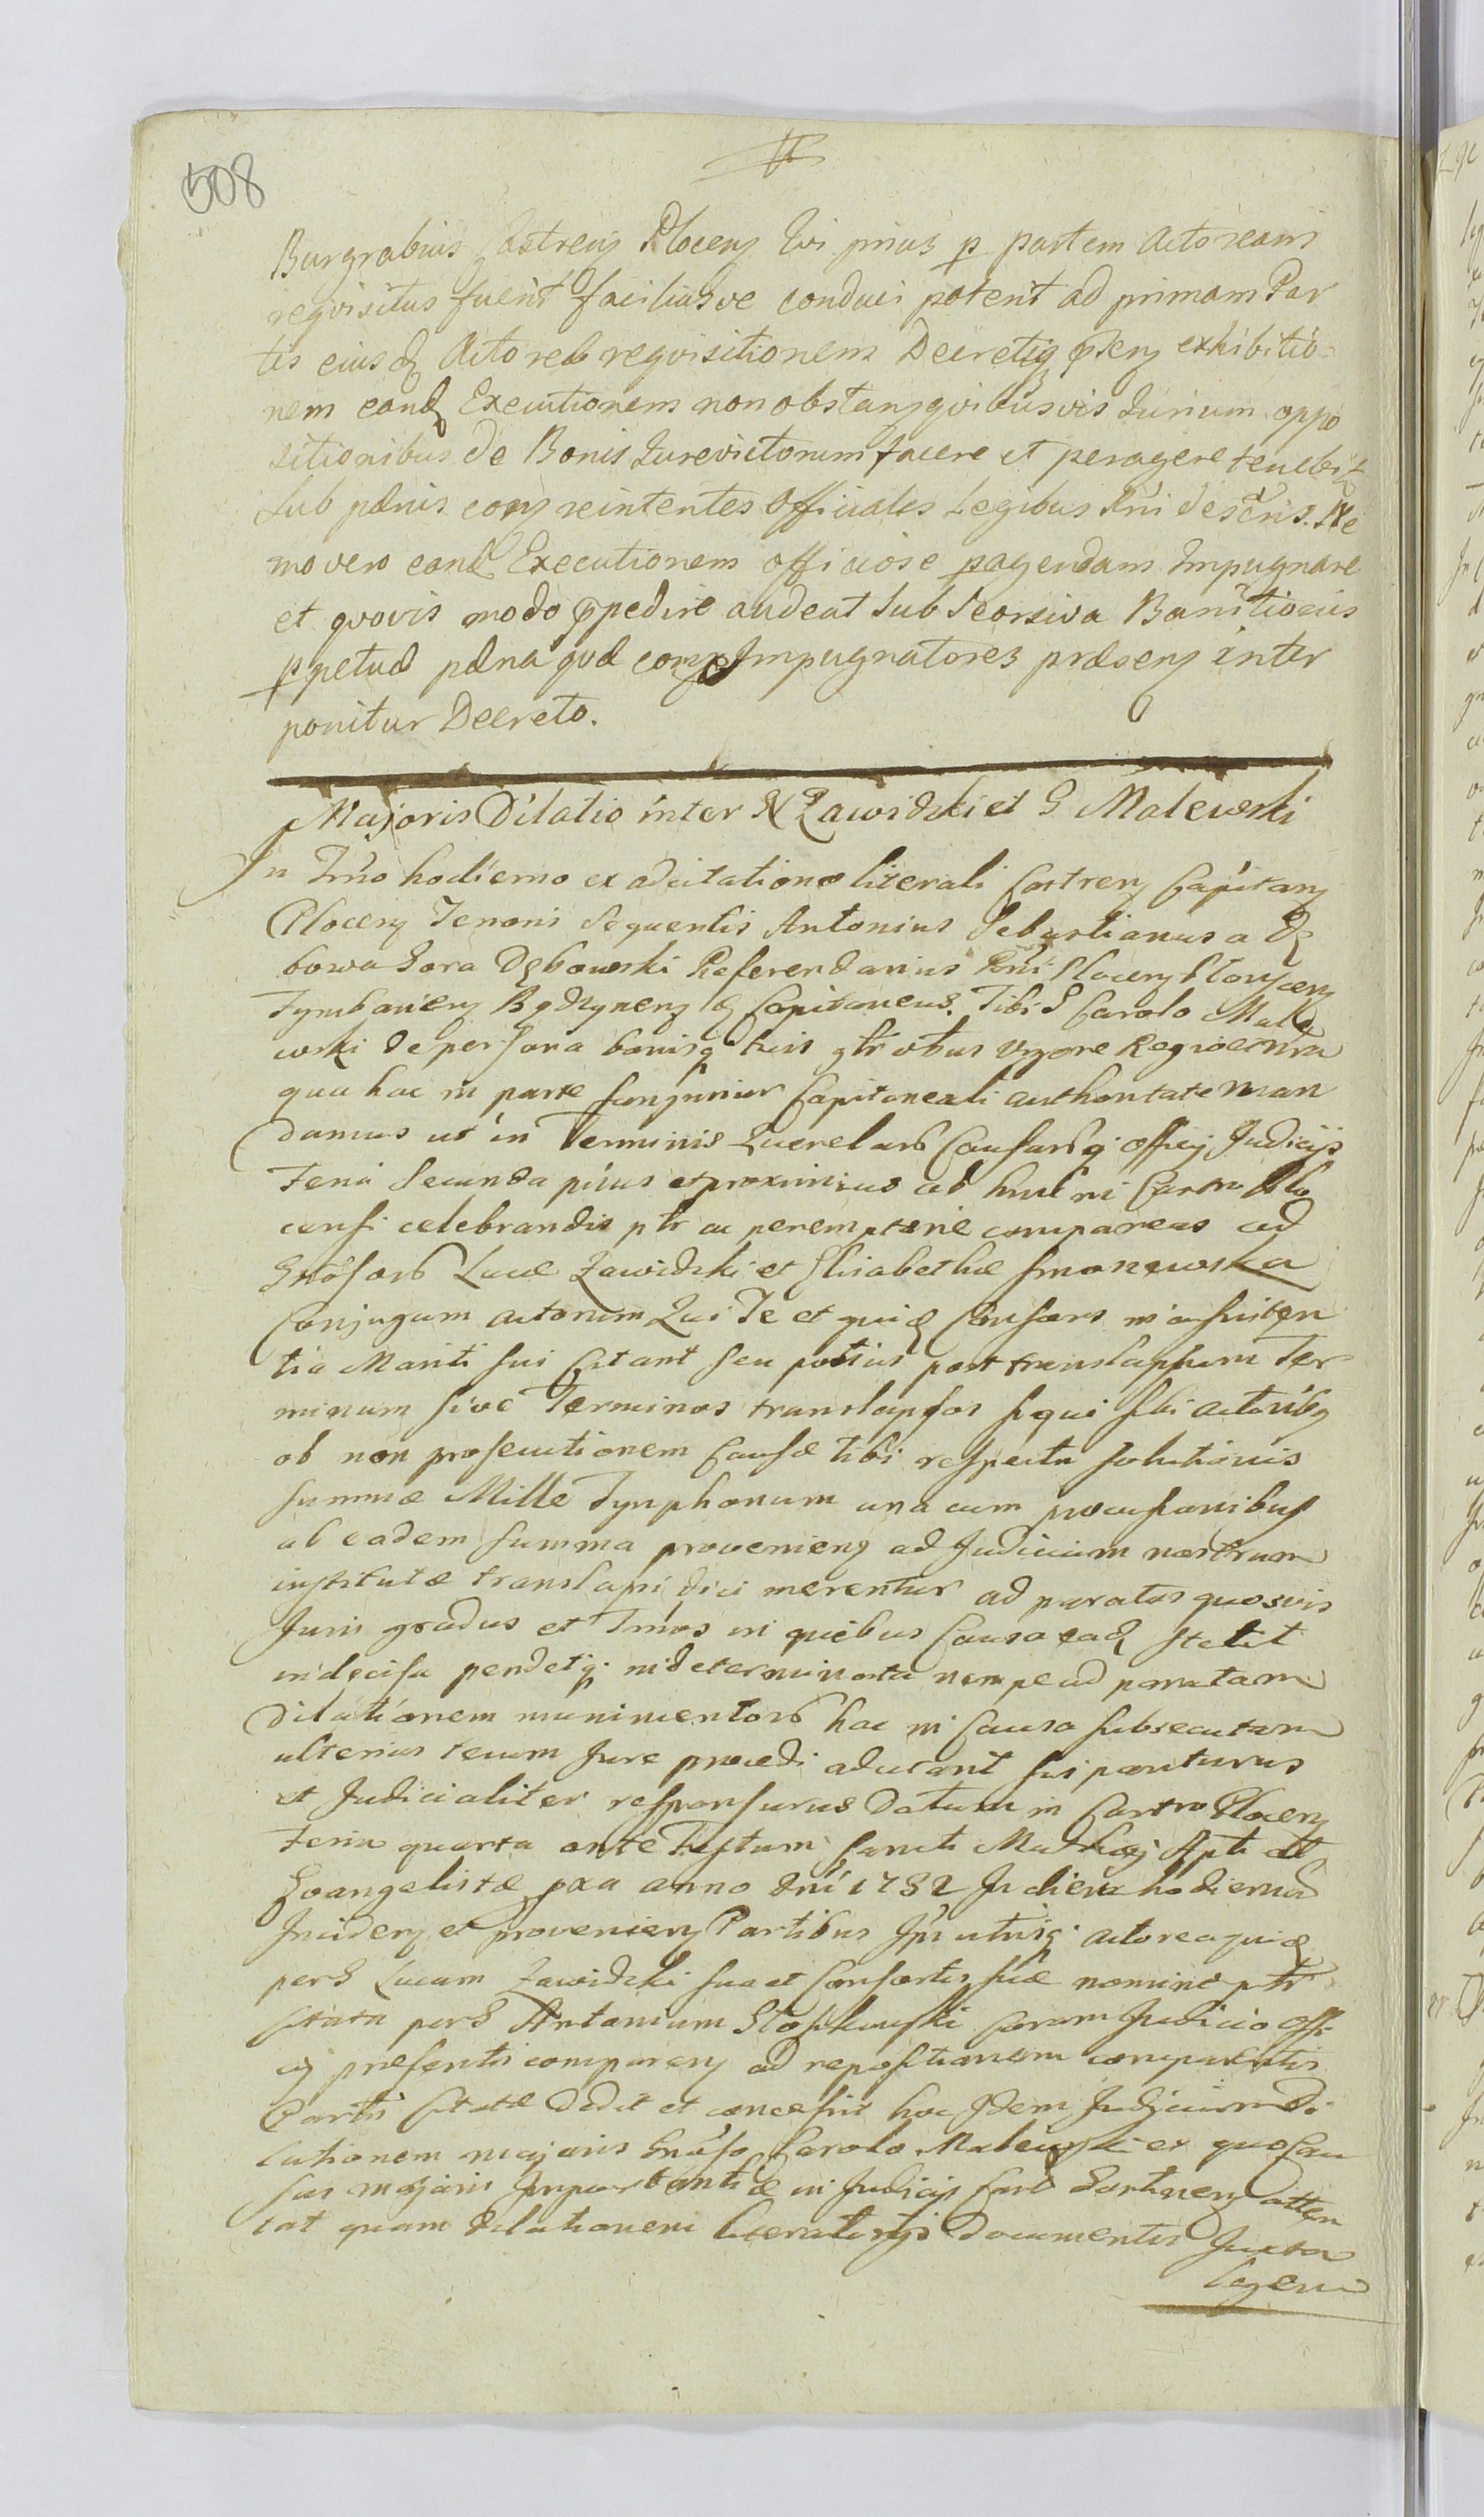 508
Burgrabius Castrens Plocens Tvi prius p partem Actoream
reqvisitus fuerit faciliusve conduci poterit ad primam Par
tis eiusd Actoreæ reqvisitionem Decretiq pntens exhibitio
nem eand Executionem non obstans qvibusvis Iurium oppo
sitionibus de Bonis Iurevictorum facere et peragere tenebit
sub pænis cons reintentes Officiales Legibus Rni descris. Ne
mo vero eand Executionem officiose pagendam Impugnare
et qvovis modo præpedire audeat sub seorsiva Banitionis
ppetuæ pæna qvæ Impugnatores præsens inter
ponitur Decreto.
Majoris Dilatio inter N Zawidzki et G Malewski
In Trno hodierno ex adcitatione literali Castrens Capitans
Plocens Tenoris sequentis Antonius Sebastianus a Dę
bowa Gora Dębowski Referendarius Rni Plocens
Tymbariens Capitaneus. Tibi G Carolo Male
wski de persona bonisq tuis gtr obus vigore Regio et nra
qua hac in parte fungimur Capitaneali authoritate man
damus ut in Terminis Querelarum Causarumq Officij Judicijs
Feria secunda prius et proximius ad huc in Castro Plo
censi celebrandis ptr ac peremptorie compareas ad
Gnosorum Lucæ Zawidzki et Elisabethæ
Conjugum actorum Qui Te et quid Consors in assisten
tia Mariti sui Citant seu potius post translapsum Ter
minum sive Terminos translapsos si qui sibi actoribq
ob non prosecutionem Causæ tibi respectu solutionis
summæ Mille Tynphonum una cum provisionibus
ab eadem summa proveniens ad Judicium nostrum
institutæ translapsi dici merentur ad paratos quosvis
Juris gradus et Trnos in quibus Causa ead stetit
indecisa pendetq indeterminata nempe ad paratam
Dilationem munimentorum hac in Causa subsecutam
ulterius tecum Jure procedi adcitant sis pariturus
et Judicialiter responsurus Datum in Castro Plocens
Feria quarta ante Festum Sancti Mathæi Apli et
Evangelistæ pxa anno Dni 1732 In diem hodiernam
Incidens et proveniens Partibus Ipsis utrisq actorea quid
per G Lucam Zawidzki suo et Consortis suæ nomine ptr
Citata per G Antonium Coram Judicio offi
cij præsentis comparens ad repositionem comparentis
Partis Citatæ Dedit et concessit hoc Idem Judicium Di
lationem majoris Gnoso Carolo Malewski ex quo Cau
sas majoris Importantiæ in Judicijs atten
tat quam dilationem literatorijs Documentis Juxta
Legem